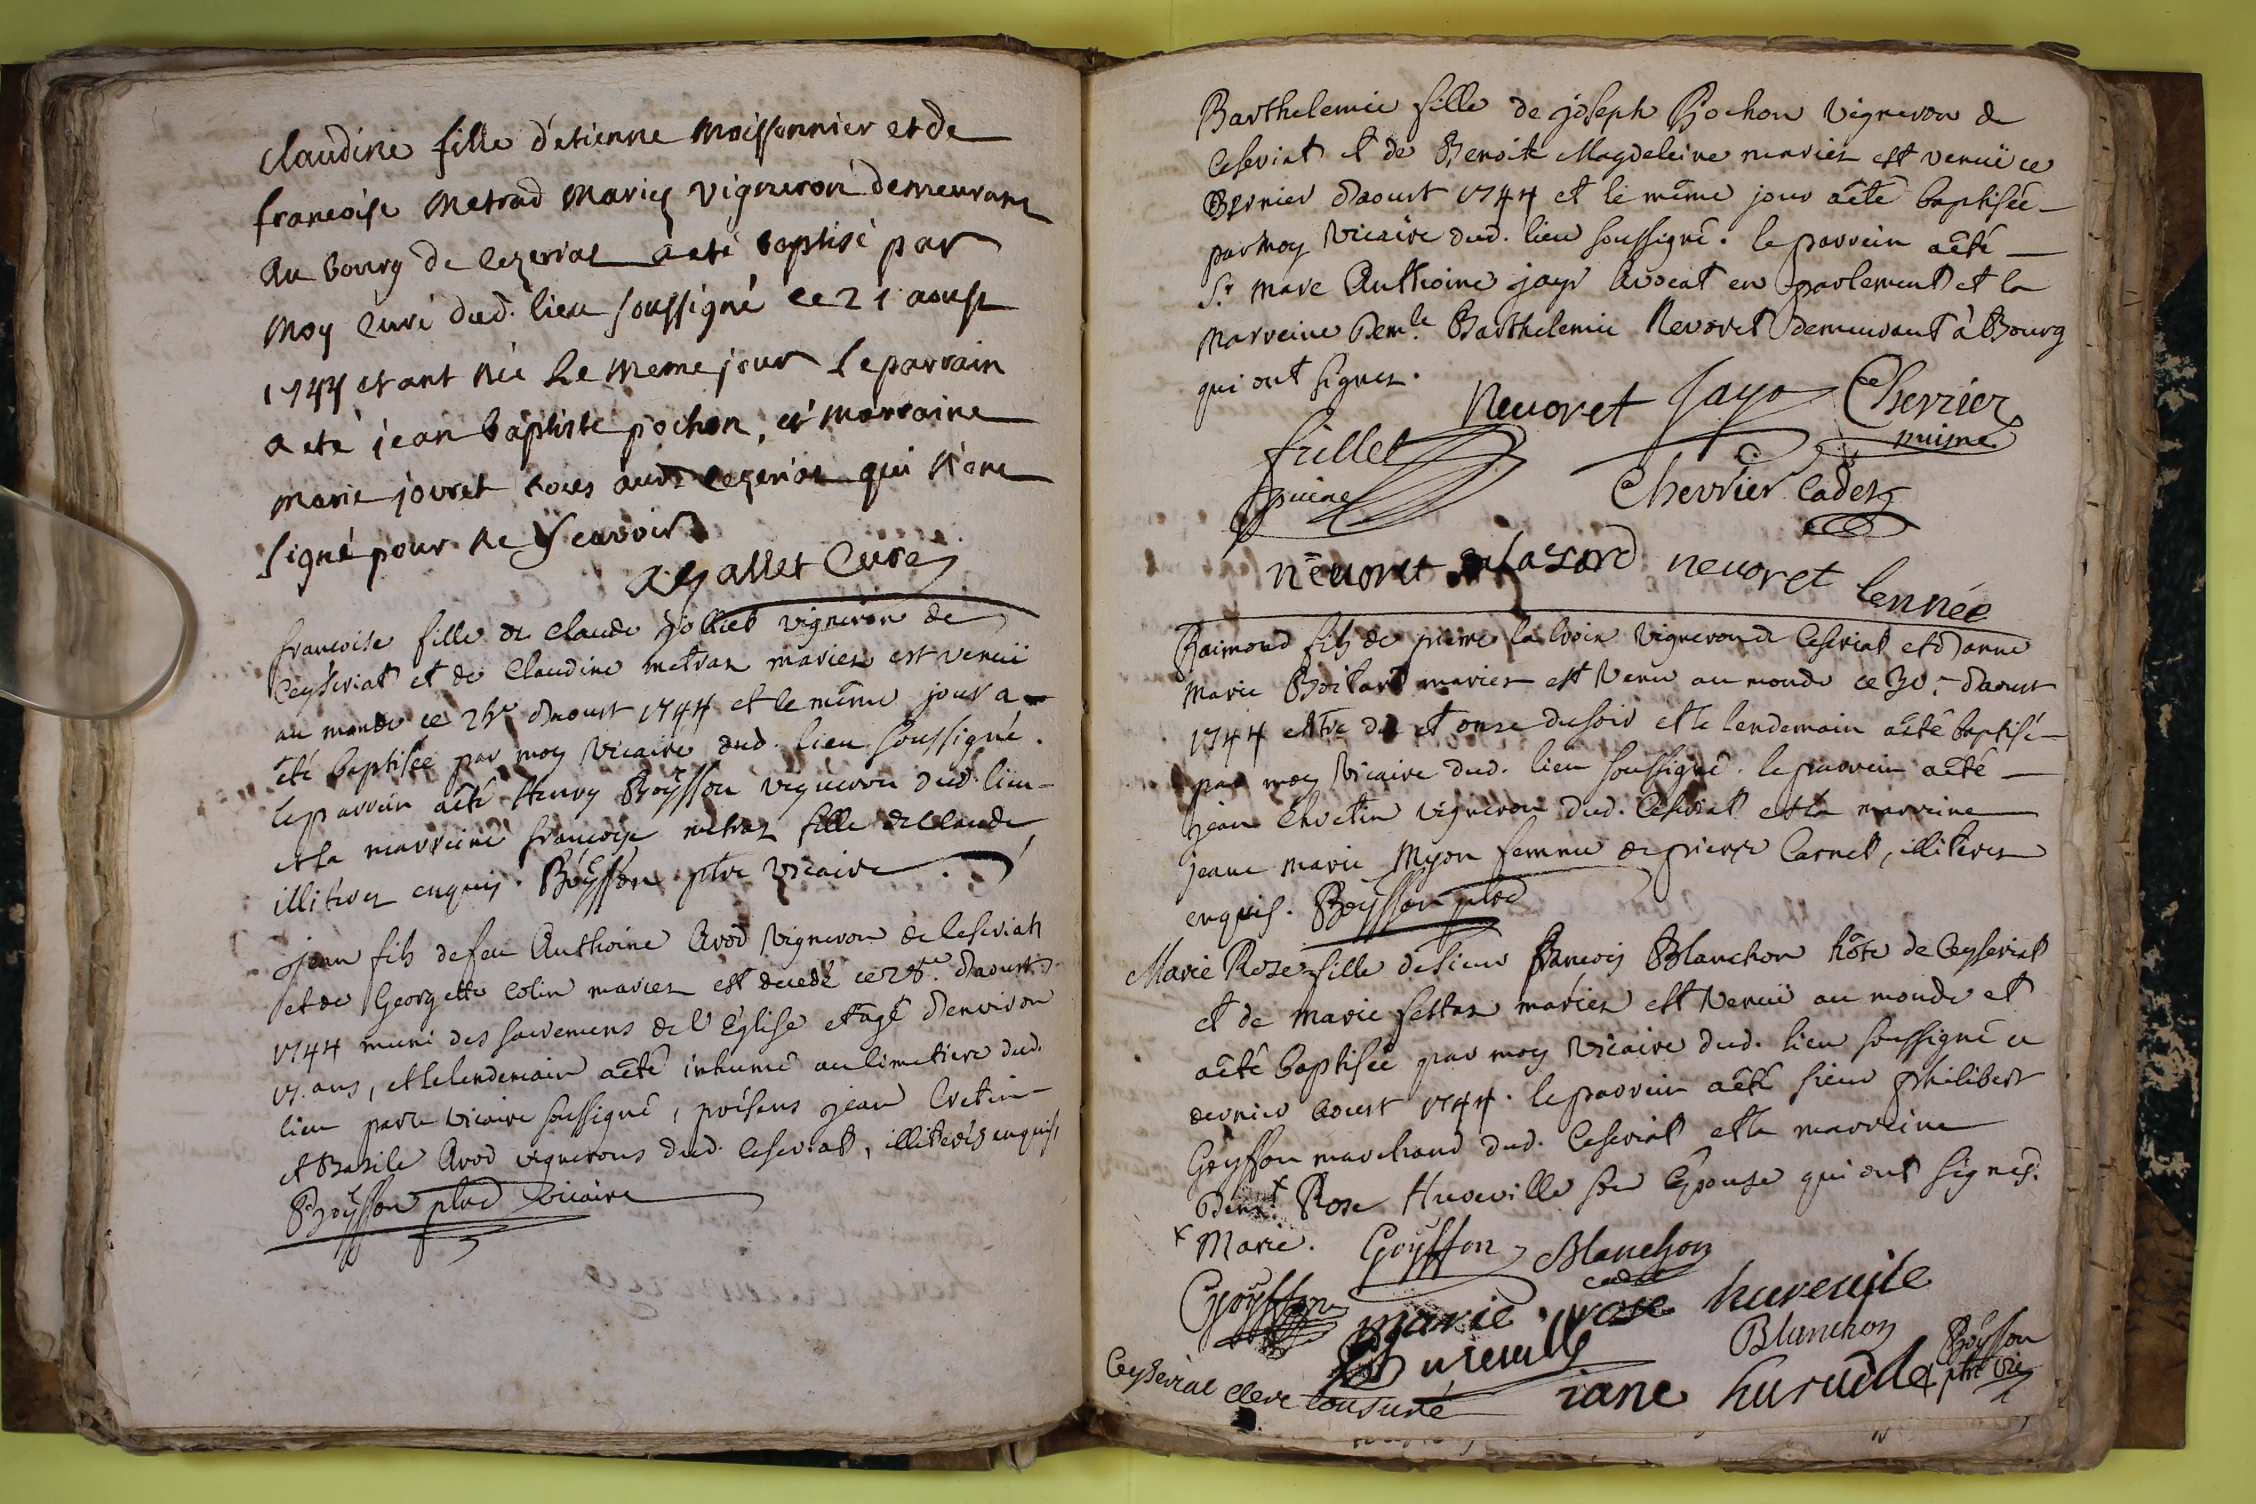 claudine fille d'etienne Moissonnier et de
francoise Metrad Mariez vigneron demeurant
Au bourg de cezeriat a eté baptisé par
Moy Curé dud. lieu soussigné le 21 aoust
1744 etant née Le meme jour Le parrain
a eté jean baptiste pochon, et marraine
Marie jovret tous audt cezeriat qui n'ont
signé pour ne scavoir
Gallet Curé
francoise fille de Claude Jolliet vigneron de
Ceyseriat et de Claudine metraz mariez est venuë
au monde ce d'aoust 1744 et le même jour a
été baptisée par moy vicaire dud. lieu soussigné.
le parrein a été Henry Boÿsson vigneron dud. lieu
et la marreine francoise metraz fille de Claude
illitérez enquis. Boÿsson ptre vicaire.
Jean fils de feu Anthoine Avod vigneron de Ceseriat
et de Georgette Colin mariez est decedé ce 28e. d'aoust
1744 muni des sacremens de l'Eglise et agé d'environ
ans, et le lendemain a été inhumé au cimetiere dud.
lieu par le vicaire soussigné, présens jean Cretin
et Basile Avod vignerons dud. Ceseriat, illiterés enquis,
Boÿsson ptre vicaire
Barthelemie fille de joseph Pochon vigneron de
Ceseriat et de Benoite Magdeleine mariez est venuë ce
dernier d'aoust 1744 et le même jour a été baptisée
par moy vicaire dud. lieu soussigné. le parrein a été
Sr. Marc Anthoine jayr Avocat en parlement et la
marreine Demlle Barthelemie Nevoret demeurant à Bourg
qui ont signez.
Nevoret Jayr Chevrier
puiné
frillet
puiné
Chevrier Cadet
nevoret nevoret lennée
Raimond fils de pierre la Croix vigneron de Ceseriat et d'anne
Marie mariez est venu au monde ce 30e d'aoust
1744 entre dix et onze du soir et le lendemain a été baptisé
par moy vicaire dud. lieu soussigné. le parrein a été
Jean Chretin vigneron dud. Ceseriat et la marreine
jeane Marie Myon femme de pierre Carnet, illiterez
enquis. Boÿsson ptre
Marie Roze fille de sieur francois Blanchon hôte de Ceyseriat
et de Marie mariez est venuë au monde et
a été baptisée par moy vicaire dud. lieu soussigné ce
dernier aoust 1744. le parrein a été sieur philibert
Goÿffon marchand dud. Ceseriat et la marreine
Dem x Rose Hureville son Epouse qui ont signés.
x Marie. Goÿffon Blanchon
cadet
Goÿffon marie rose hureuile
hureuille Blanchon Boÿsson
ptre vic
Ceyseriat clerc tonsuré iane hureuille